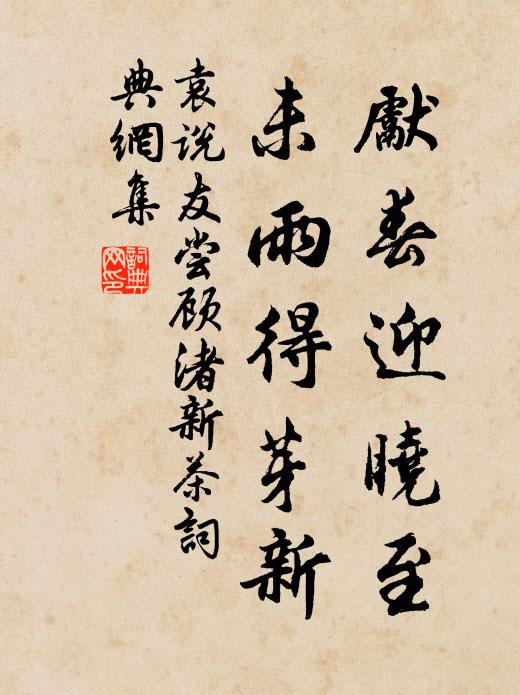 獻春迎曉至
未雨得芽新
袁说友尝顾渚新茶詞
典網集
詞典
网印